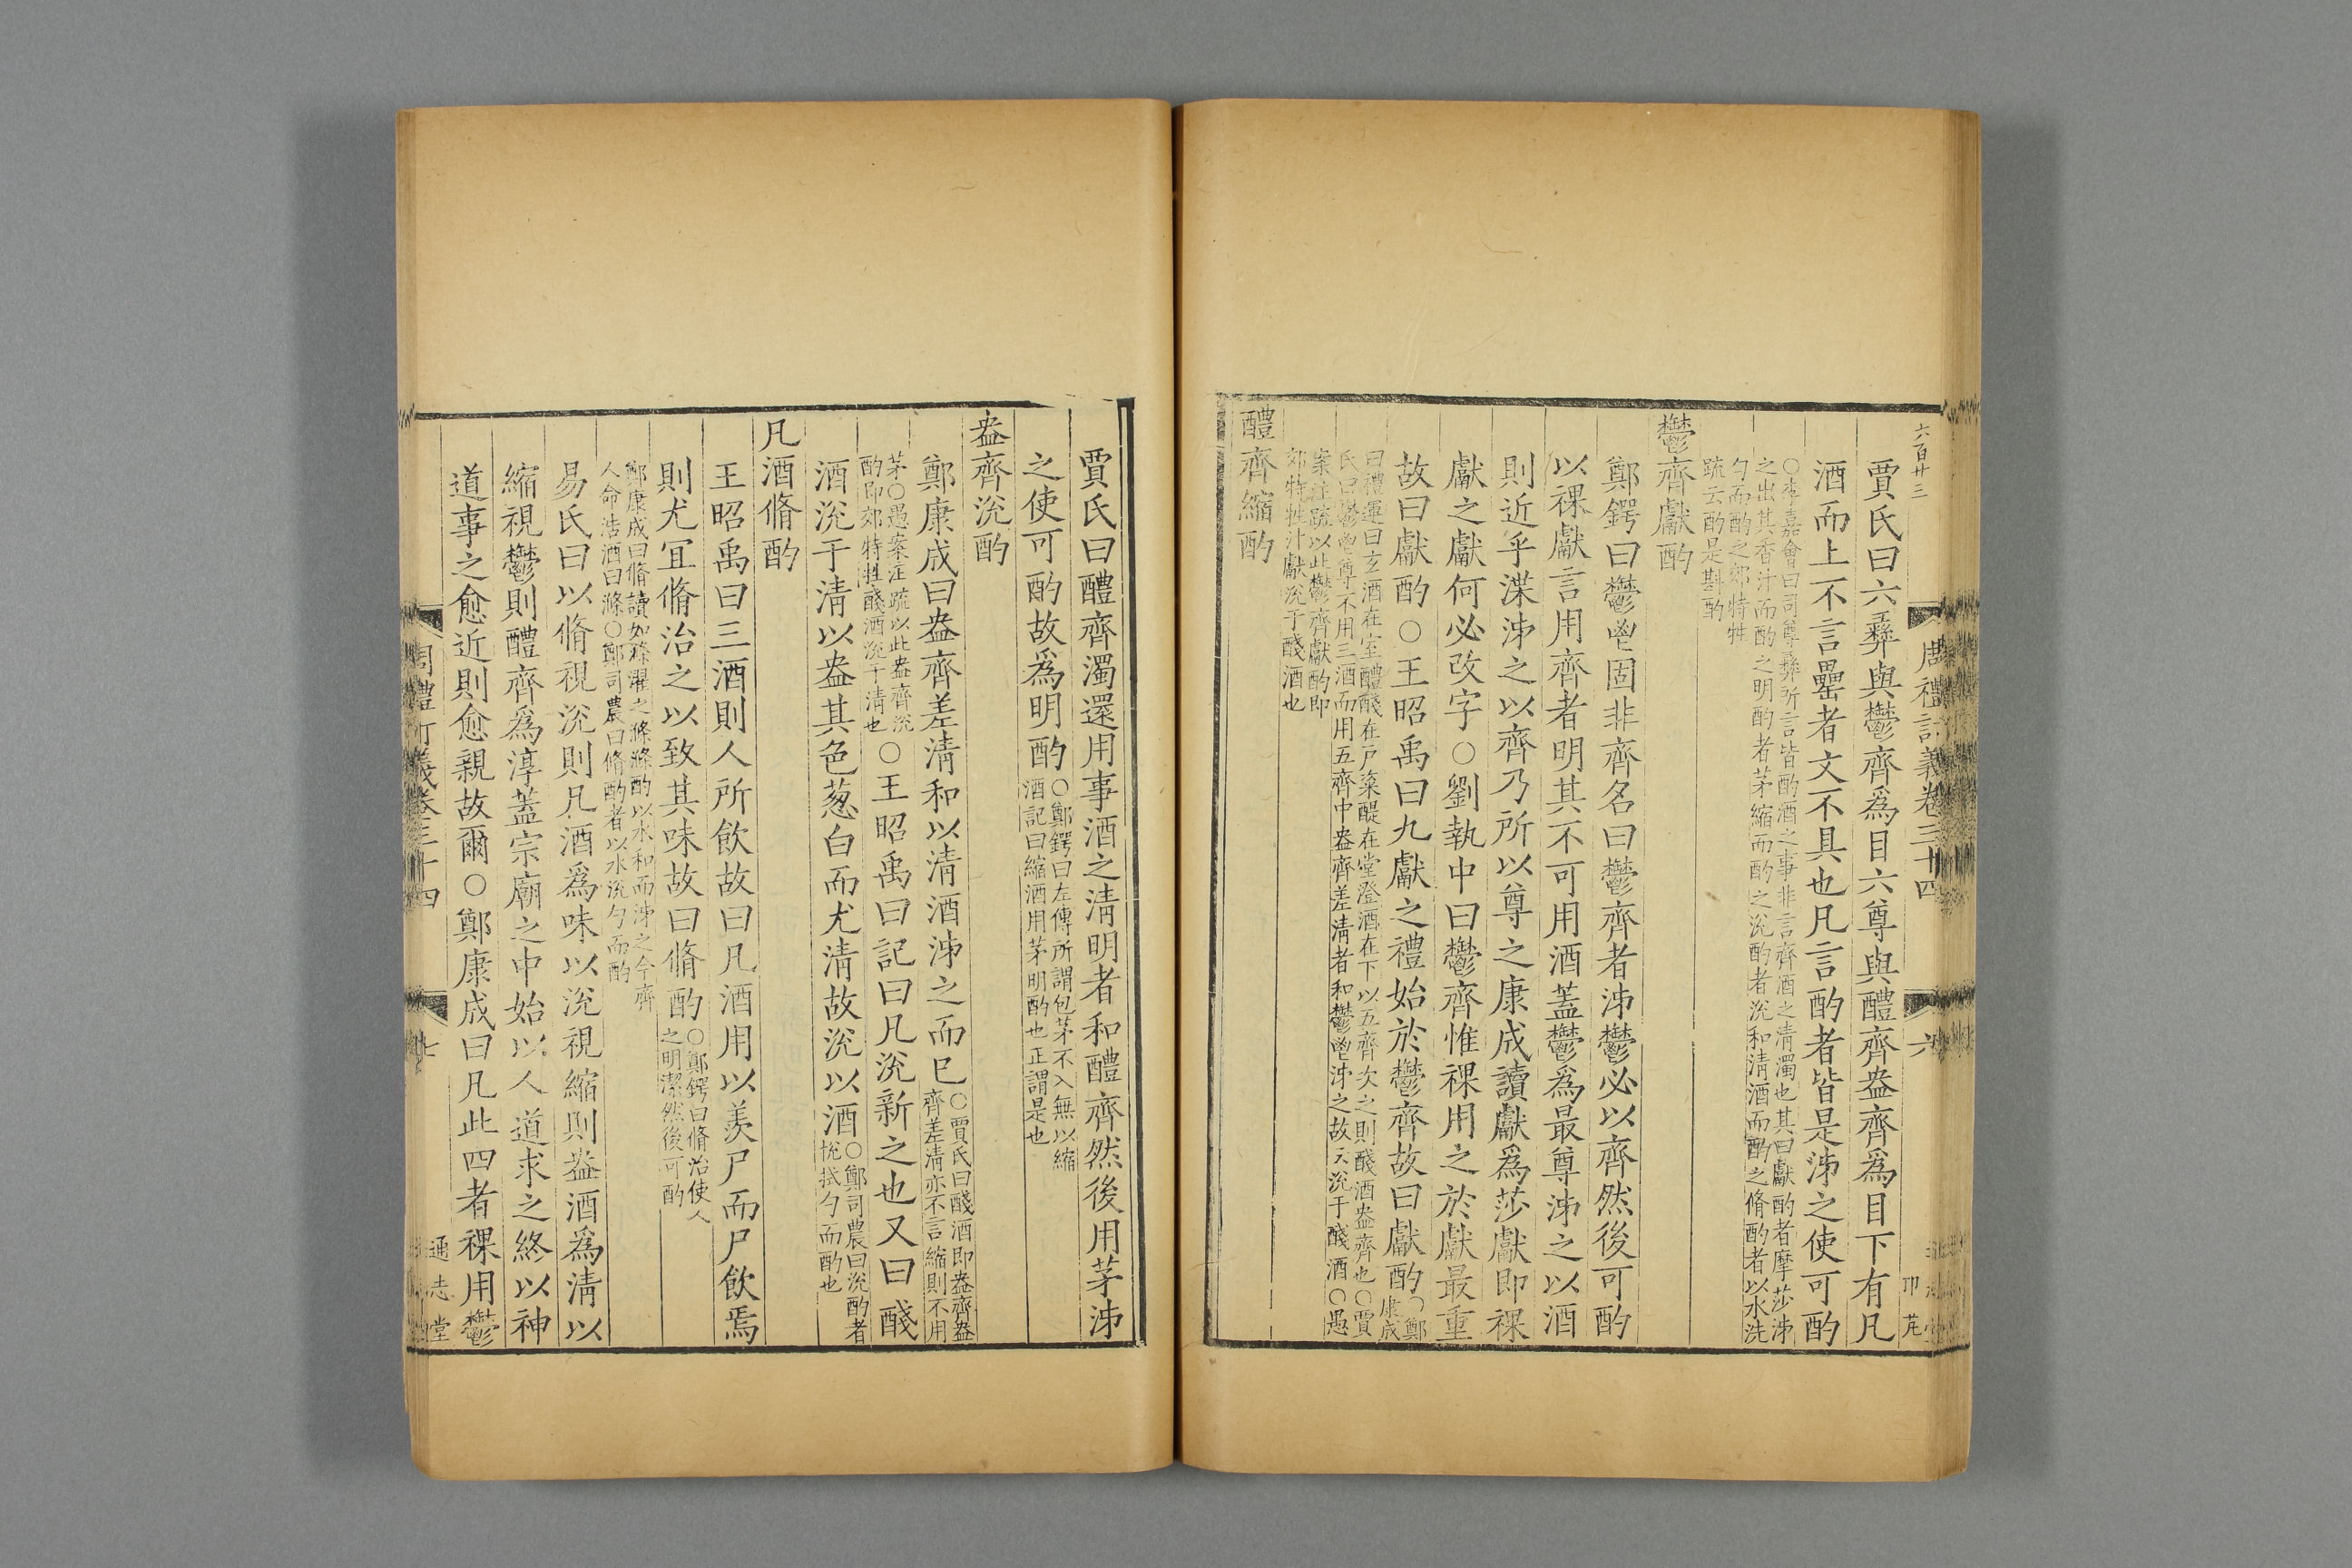 六百廿三
賈氏曰六彛與鬱齊爲目六尊與醴齊盎齊爲目下有凡
酒而上不言罍者文不具也凡言酌者皆是泲之使可酌
○李嘉會曰司尊彛所言皆酌酒之事非言齊酒之清濁也其曰獻酌者摩莎泲
之出其香汁而酌之明酌者茅縮而酌之涗酌者涗和淸酒而酌之脩酌者以水洗
勺而酌之郊特牲
疏云酌是斟酌
鬱齊獻酌
鄭鍔曰鬱鬯固非齊名曰鬱齊者泲鬱必以齊然後可酌
以祼獻言用齊者明其不可用酒蓋鬱爲最尊泲之以酒
則近乎渫泲之以齊乃所以尊之康成讀獻爲莎獻即祼
獻之獻何必改字○劉執中曰鬱齊惟祼用之於獻最重
故曰獻酌○王昭禹曰九獻之禮始於鬱齊故曰獻酌○鄭
康成
曰禮運曰玄酒在室醴醆在戸粢醍在堂澄酒在下以五齊次之則醆酒盎齊也○賈
氏曰鬱鬯尊不用三酒而用五齊中盎齊差淸者和鬱鬯泲之故云涗于醆酒○愚
案注疏以此鬱齊獻酌即
郊特牲汁獻涗于醆酒也
醴齊縮酌
周禮訂義卷三十四
六
賈氏曰醴齊濁還用事酒之淸明者和醴齊然後用茅泲
之使可酌故爲明酌○鄭鍔曰左傳所謂包茅不入無以縮
酒記曰縮酒用茅明酌也正謂是也
盎齊涗酌
鄭康成曰盎齊差淸和以淸酒泲之而已○賈氏曰醆酒即盎齊盎
齊差淸亦不言縮則不用
茅○愚案注疏以此盎齊涗
酌即郊特牲醆酒涗于淸也○王昭禹曰記曰凡涗新之也又曰醆
酒涗于淸以盎其色葱白而尤淸故涗以酒○鄭司農曰涗酌者
捝拭勺而酌也
凡酒脩酌
王昭禹曰三酒則人所飲故曰凡酒用以羨尸而尸飲焉
則尤宜脩治之以致其味故曰脩酌○鄭鍔曰脩治使人
之明潔然後可酌
鄭康成曰脩讀如滌濯之滌滌酌以水和而泲之今齊
人命浩酒曰滌○鄭司農曰脩酌者以水洗勺而酌
易氏曰以脩視涗則凡酒爲味以涗視縮則盎酒爲淸以
縮視鬱則醴齊爲淳蓋宗廟之中始以人道求之終以神
道事之愈近則愈親故爾○鄭康成曰凡此四者祼用鬱
周禮訂義卷三十四
七
通志堂